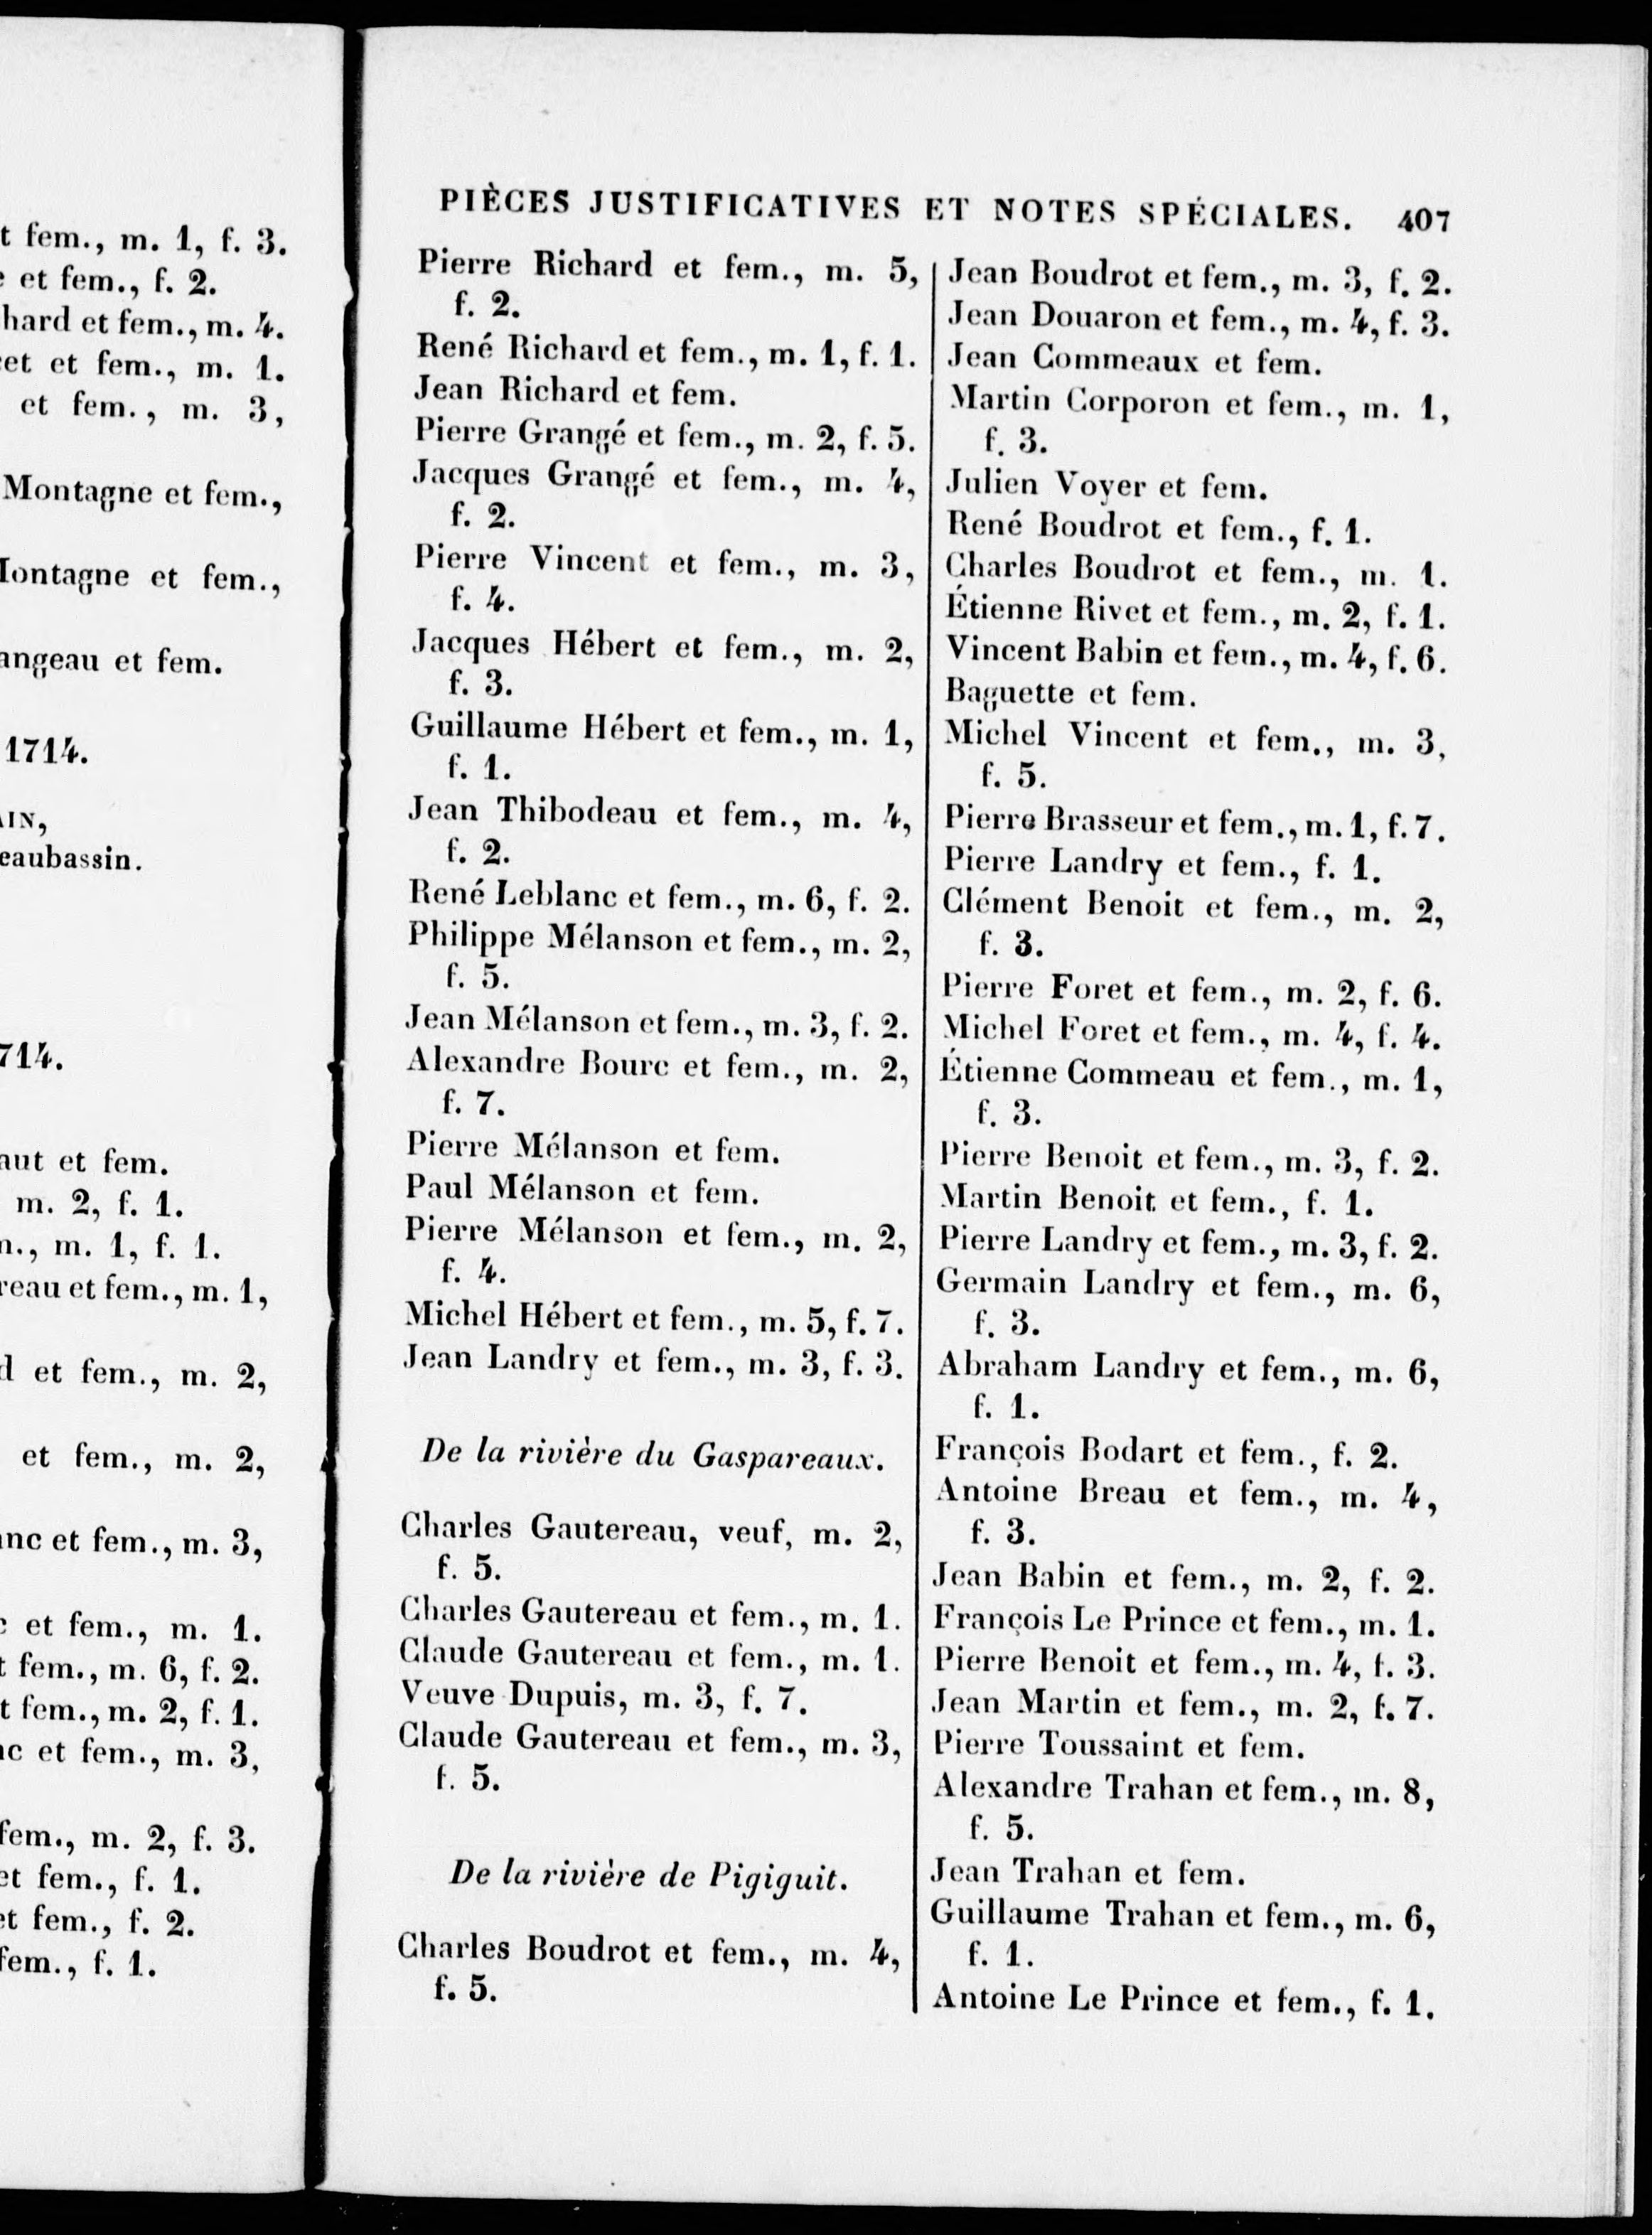 t fem., m. 1, f. 3.
et fem., f. 2.
hard et fem., m. 4.
et et fem., m. 1.
et fem., m. 3,
Montagne et fem.,
Iontagne et fem.,
angeau et fem.
1714.
IN,
eaubassin.
714.
aut et fem.
m. 2, f. 1.
m. 1, f. 1.
reau et fem., m. 1,
d et fem., m. 2,
et fem., m. 2,
nc et fem., m. 3,
et fem., m. 1.
t fem., m. 6, f. 2.
t fem., m. 2, f. 1.
c et fem., m. 3,
fem., m. 2, f. 3.
et fem., f. 1.
et fem., f. 2.
fem., f. 1.
PIÈCES JUSTIFICATIVES ET NOTES SPÉCIALES. 407
Pierre Richard et fem., m. 5,
f. 2.
René Richard et fem., m. 1, f. 1.
Jean Richard et fem.
Pierre Grangé et fem., m. 2, f. 5.
Jacques Grangé et fem., m. 4,
f. 2.
Pierre Vincent et fem., m. 3,
f. 4.
Jacques Hébert et fem., m. 2,
f. 3.
Guillaume Hébert et fem., m. 1,
f. 1.
Jean Thibodeau et fem., m. 4,
f. 2.
René Leblanc et fem., m. 6, f. 2.
Philippe Mélanson et fem., m. 2,
f. 5.
Jean Mélanson et fem., m. 3, f. 2.
Alexandre Bourc et fem., m. 2,
f. 7.
Pierre Mélanson et fem.
Paul Mélanson et fem.
Pierre Mélanson et fem., m. 2,
f. 4.
Michel Hébert et fem., m. 5, f. 7.
Jean Landry et fem., m. 3, f. 3.
De la rivière du Gaspareaux.
Charles Gautereau, veuf, m. 2,
f. 5.
Charles Gautereau et fem., m. 1.
Claude Gautereau et fem., m. 1.
Veuve Dupuis, m. 3, f. 7.
Claude Gautereau et fem., m. 3,
f. 5.
De la rivière de Pigiguit.
Charles Boudrot et fem., m. 4,
f. 5.
Jean Boudrot et fem., m. 3, f. 2.
Jean Douaron et fem., m. 4, f. 3.
Jean Commeaux et fem.
Martin Corporon et fem., m. 1,
f. 3.
Julien Voyer et fem.
René Boudrot et fem., f. 1.
Charles Boudrot et fem., m. 1.
Étienne Rivet et fem., m. 2, f. 1.
Vincent Babin et fem., m. 4, f. 6.
Baguette et fem.
Michel Vincent et fem., m. 3,
f. 5.
Pierre Brasseur et fem., m. 1, f. 7.
Pierre Landry et fem., f. 1.
Clément Benoit et fem., m. 2,
f. 3.
Pierre Foret et fem., m. 2, f. 6.
Michel Foret et fem., m. 4, f. 4.
Étienne Commeau et fem., m. 1,
f. 3.
Pierre Benoit et fem., m. 3, f. 2.
Martin Benoit et fem., f. 1.
Pierre Landry et fem., m. 3, f. 2.
Germain Landry et fem., m. 6,
f. 3.
Abraham Landry et fem., m. 6,
f. 1.
François Bodart et fem., f. 2.
Antoine Breau et fem., m. 4,
f. 3.
Jean Babin et fem., m. 2, f. 2.
François Le Prince et fem., m. 1.
Pierre Benoit et fem., m. 4, f. 3.
Jean Martin et fem., m. 2, f. 7.
Pierre Toussaint et fem.
Alexandre Trahan et fem., m. 8,
f. 5.
Jean Trahan et fem.
Guillaume Trahan et fem., m. 6,
f. 1.
Antoine Le Prince et fem., f. 1.